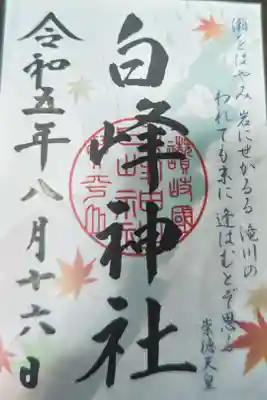 瀬をはやみ 岩にせかるる 滝川の
われても末に 逢はむとぞ思ふ
崇徳天皇
白峰神社
讃岐國
令和五年八月十六日